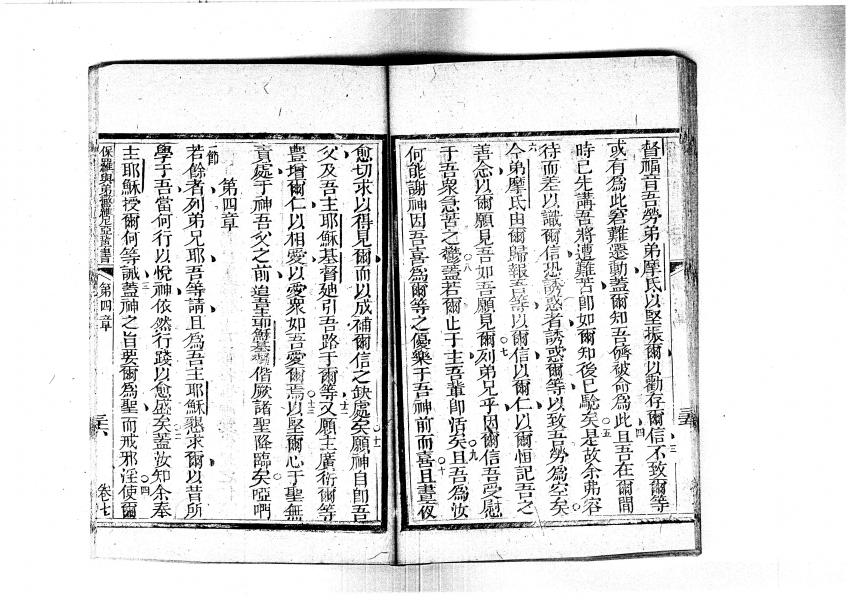 督福音吾勞弟弟摩氏以堅振爾以勸存爾信不致爾等
或有為此窘難遷動蓋爾知吾儕被命為此且吾在爾間
時已先講吾將遭難苦即如爾知後已騐矣是故余弗容
待而差以識爾信恐誘惑者誘惑爾等以致吾勞為空矣
今弟摩氏由爾歸報吾等以爾信以爾仁以爾恒記吾之
善念以爾願見吾如吾願見爾列弟兄乎因爾信吾受慰
于吾衆急苦之鬱蓋若爾止于主吾輩即活矣且吾為汝
何能謝神因吾喜為爾等之優樂于吾神前而喜且晝夜
愈切求以得見爾而以成補爾信之缺處矣願神自即吾
父及吾主耶穌基督廸引吾路于爾等又願主廣衍爾等
豐增爾仁以相愛以愛衆如吾愛爾焉以堅爾心于聖無
責處于神吾父之前迨吾主耶穌基督偕厥諸聖降臨矣啞們
第四章
一節
若餘者列弟兄耶吾等請且為吾主耶穌懇求爾以昔所
學于吾當何行以悅神依然行踐以愈盛矣蓋汝知余奉
主耶穌授爾何等誡蓋神之旨要爾為聖而戒邪淫使爾
保羅與弟撒羅尼亞輩書 第四章 三六 卷七